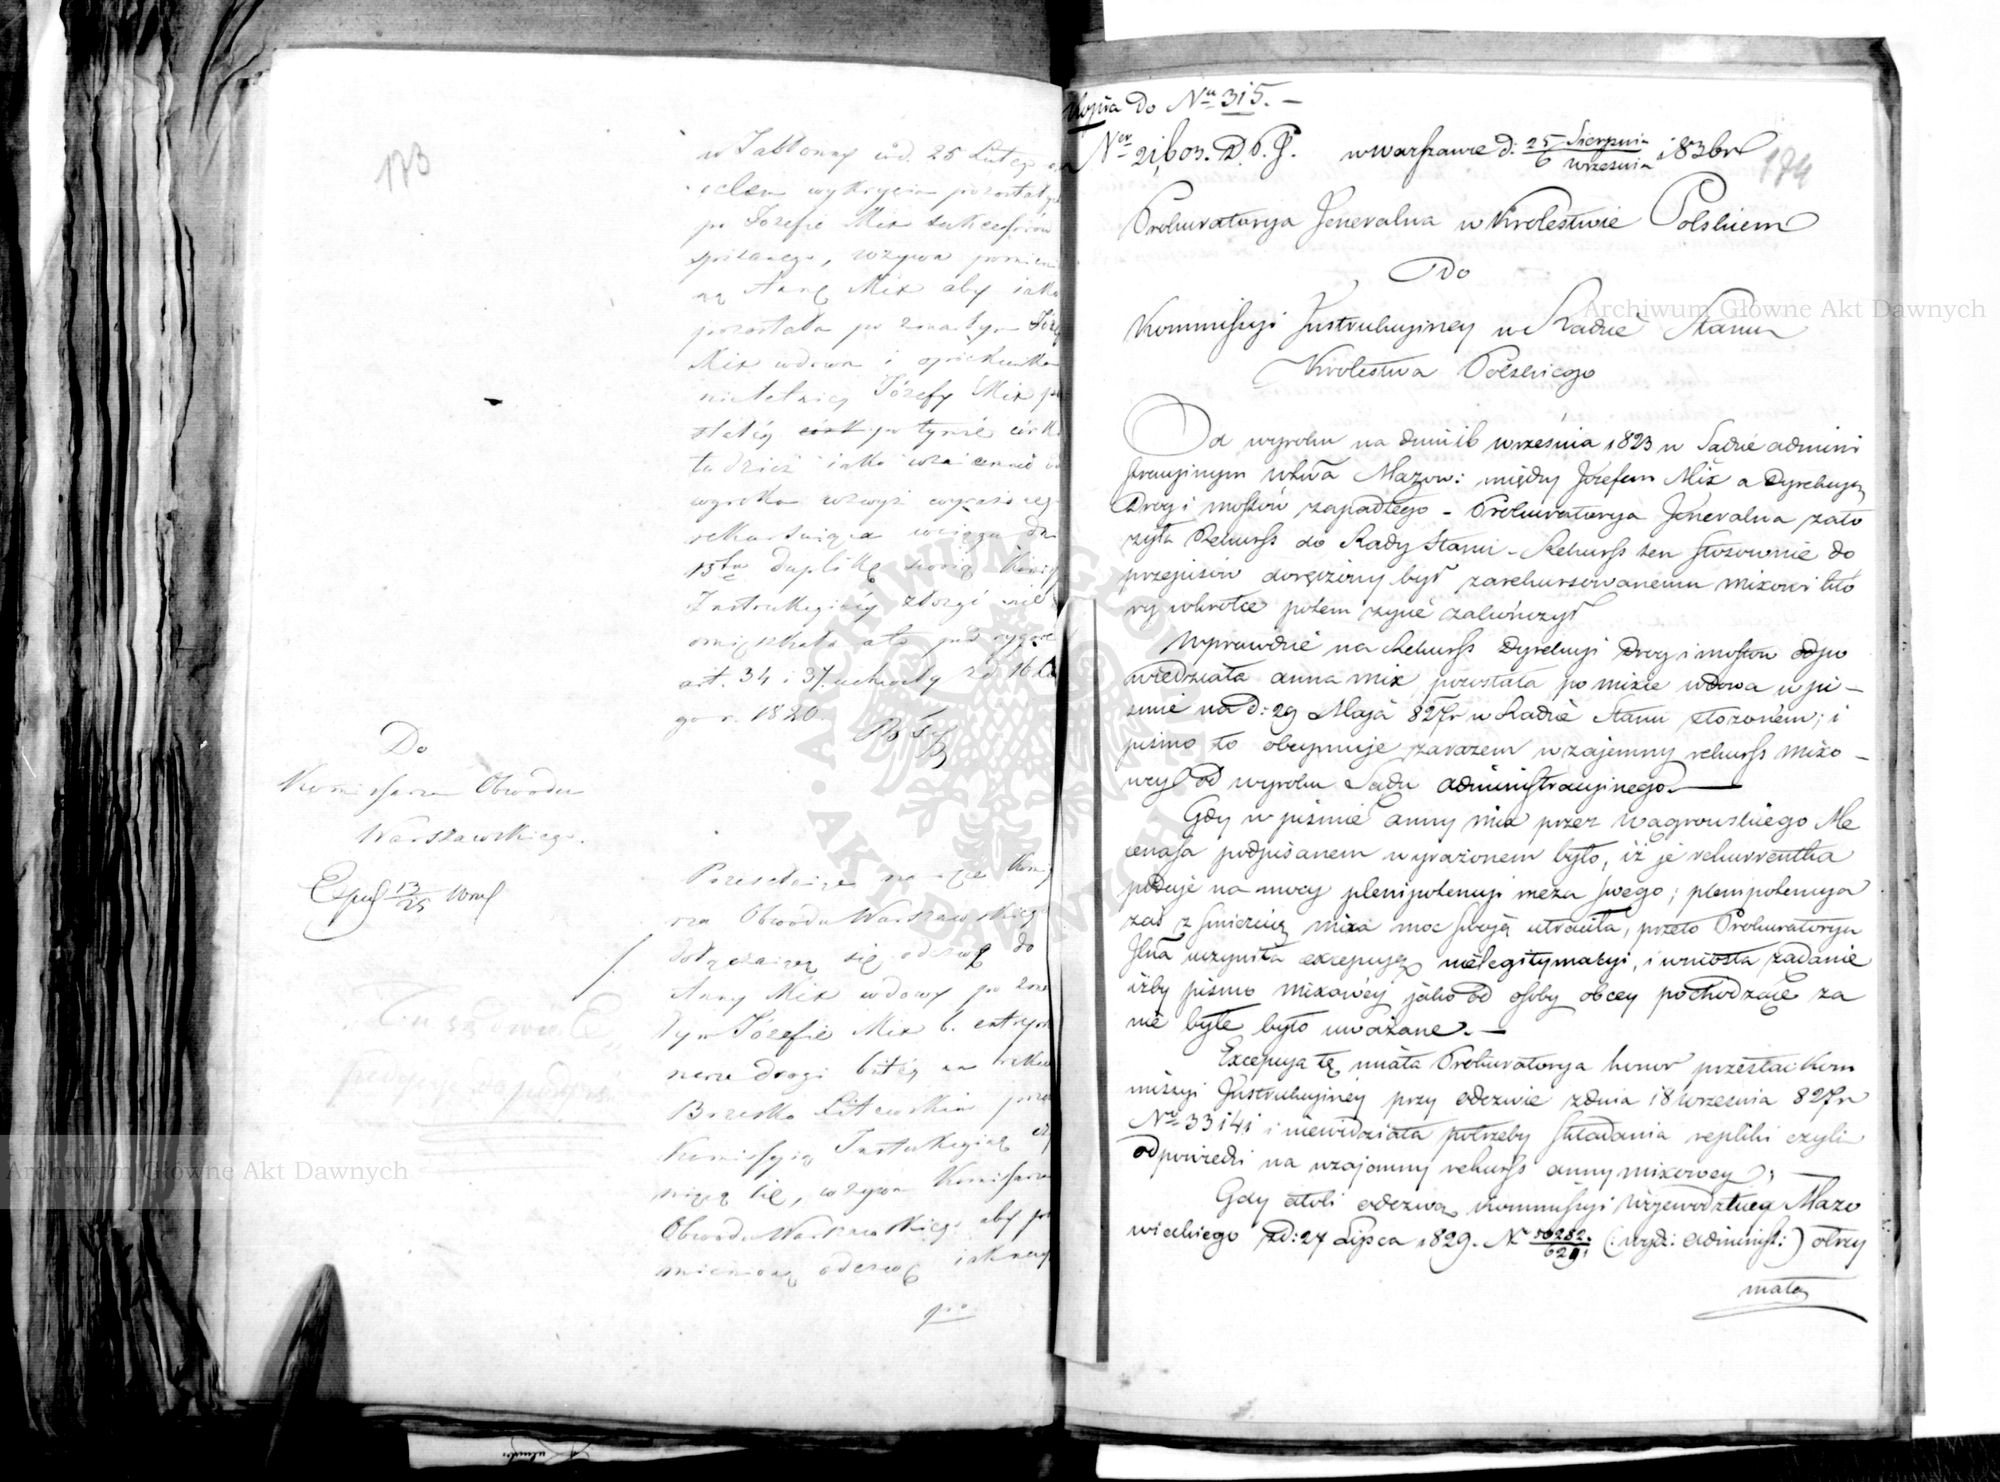 173
w Jabłonny w d. 25 Lutego
celem wykrycia pozostałych
po Józefie Mix sukcessorów
spisanego, wzywa pomienio
ną Annę Mix aby iako
pozostała po zmarłym Józe
Mix wdowa i opiekunka
nieletniej Józefy Mix po
stałej po tymże córk
tudzież iako
wyroku wzwyż
rekursująca w ciągu dni
15tu duplikę swoią Komis
Instrukcyjnej złożyć nie
omieszkała a to pod rygore
art. 34 i 37 uchwały z d. 16 Lu
go r. 1820.
Do
Komissarza Obwodu
Warszawskiego.
Exped 13/25 Wrześ
Przesyłając
rza Obwodu Warszawskiego
dołączaiącą się odezwę do
Anny Mix wdowy po zmar
łym Józefie Mix b. entrepre
nerze drogi bitej na trakcie
Brzesko Litewskim przez
Komissyią Instrukcyiną
niącą się, wzywa Komissarza
Obwodu Warszawskiego aby po
mienioną odezwę iaknay
Kopia do Nru 315. —
Ner 21,603. D.P.J. w Warszawie d: 25 Sierpnia / 6 Września 1836 r
174
Prokuratorya Jeneralna w Krolestwie Polskiem
Do
Kommissyi Instrukcyiney w Radzie Stanu
Krolestwa Polskiego
Od wyroku na dniu 16 września 1823 w Sadzie admini
stracyinym wdztwa Mazow: między Jozefem Mix a Dyrekcyą
Drog i mostów zapadłego – Prokuratorya Jeneralna zało
żyła Rekurss do Rady Stanu – Rekurss ten stosownie do
przepisów doręczony był zarekursowanemu Mixowi któ
ry wkrotce potem życie zakończył
Wprawdzie na Rekurss Dyrekcyi Drog i mostów odpo
wiedziała anna mix pozostała po mixie wdowa w pi–
śmie na d: 29 Maja 827 r w Radzie Stanu złożonem; i
pismo to obeymuje zarazem wzajemny rekurss mixo–
wey od wyroku Sadu administracyinego. —
Gdy w piśmie anny mix przez Wągrowskiego Me
cenasa podpisanem wyrażonem było, iż je rekurrentka
podaje na mocy plenipotencyi męża swego; plenipotencya
zaś z śmiercią mixa moc swoją utraciła, przeto Prokuratorya
Jlna uczyniła excepcyę nielegitymacyi, i wniosła żadanie
iżby pismo mixowéy jako od osoby obcey pochodzące za
nie byłe było uważane. —
Excepcyę tę miała Prokuratorya honor przesłać Kom
missyi Instrukcyinéy przy odezwie z dnia 18 września 827 r
Nro 33141 i niewidziała potrzeby składania repliki czyli
odpowiedzi na wzajemny rekurss anny mixowey; —
Gdy atoli odezwą Kommissyi Wojewodztwa Mazo
wieckiego z d: 27 Lipca 1829. N 50282./6291 (: wydz: administ:) otrzy
mała
Archiwum Główne Akt Dawnych
Archiwum Główne Akt Dawnych
ARCHIWUM GŁÓWNE AKT DAWNYCH